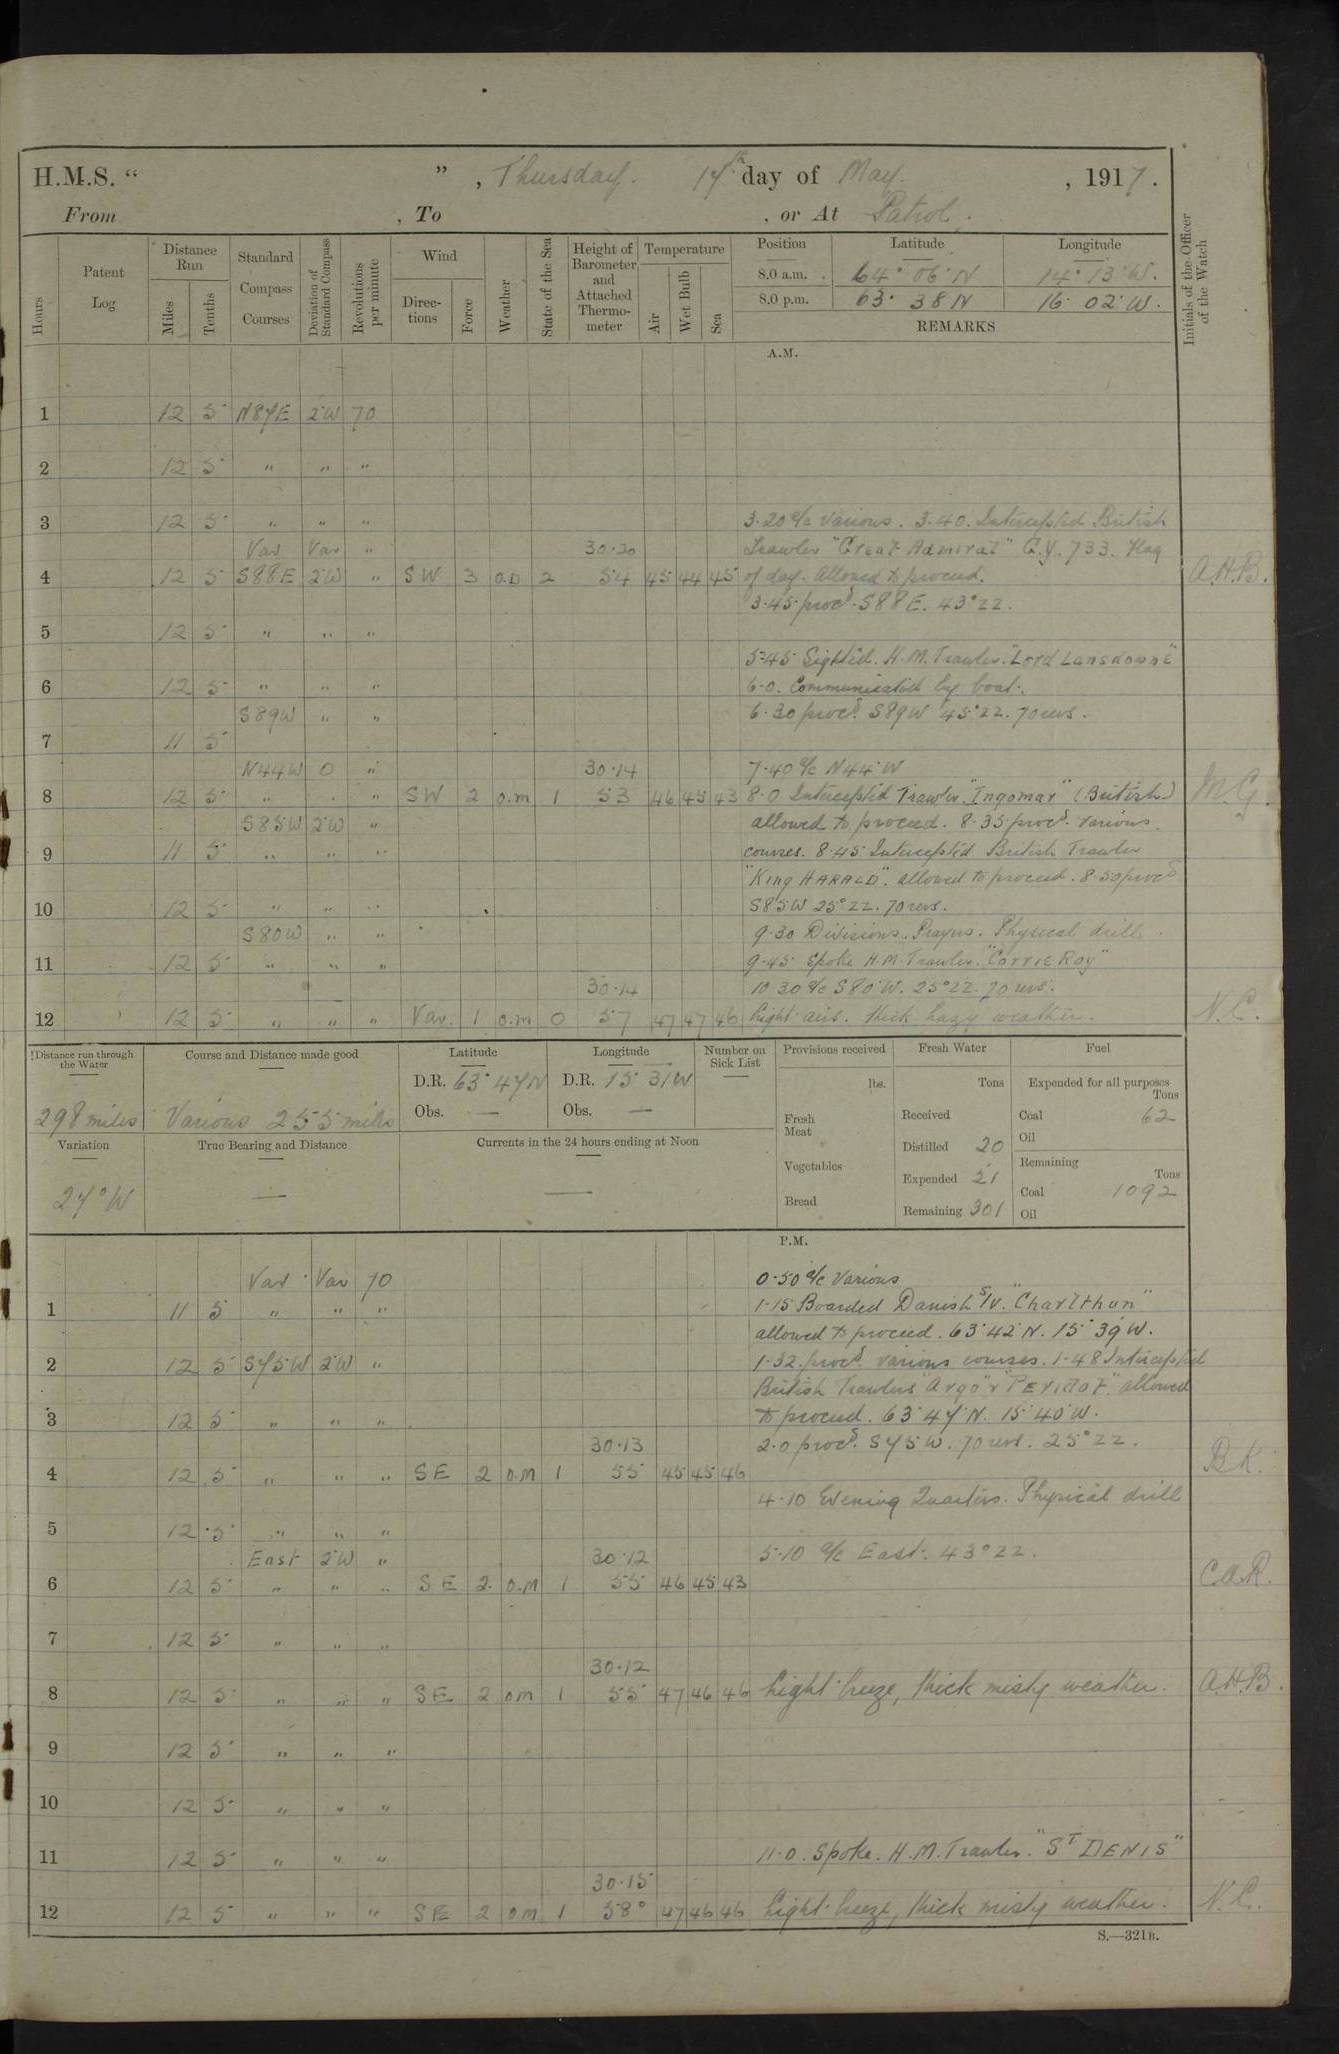 H.M.S. “ ” , Thursday. 17th day of May. , 1917.
From , To , or At Patrol.
Hours
Patent Log
Distance Run
Miles
Tenths
Standard Compass Courses
Deviation of Standard Compass
Revolutions per minute
Wind
Directions
Force
Weather
State of the Sea
Height of Barometer and Attached Thermometer
Temperature
Air
Wet Bulb
Sea
Position Latitude Longitude
8.0 a.m. 64° 06' N 14° 13' W.
8.0 p.m. 63° 38 N 16 02' W.
REMARKS
Initials of the Officer of the Watch
A.M.
1 12 5 N87E 2°W 70
2 12 5 " " "
3 12 5 " " " 3.20 a/c various. 3.40. Intercepted British
Var Var " 30.20 Trawler "Great Admiral" G.Y. 733. Flag
4 12 5 S88E 2°W " SW 3 O.D 2 54 45 44 45 of day. Allowed to proceed. A.H.B.
3.45 procd. S88E. 43°ZZ.
5 12 5 " " "
5.45 Sighted. H.M. Trawler. "Lord Lansdowne"
6 12 5 " " " 6.0. Communicated by boat.
S89W " " 6.30 procd. S89W 45°ZZ. 70 revs.
7 11 5
N44W 0 " 30.14 7.40 a/c N44°W
8 12 5 " . " SW 2 o.m 1 53 46 45 43 8.0 Intercepted Trawler. "Ingomar" (British) M.G.
S85W 2°W " allowed to proceed. 8.35 procd. various
9 11 5 " " " courses. 8.45 Intercepted British Trawler
"King HARALD". allowed to proceed. 8.50 procd
10 12 5 " " " S85W 25°ZZ. 70 revs.
S80W " " 9.30 Divisions. Prayers. Physical drill.
11 12 5 " " " 9.45 Spoke H.M. Trawler. "Corrie Roy"
30.14 10.30 a/c S80°W. 25°ZZ. 70 revs.
12 12 5 " " " Var. 1 o.m 0 57 47 47 46 Light airs. thick hazy weather. N.C.
Distance run through the Water
298 miles
Course and Distance made good
Various 255 miles
Latitude
D.R. 63° 47 N
Obs. —
Longitude
D.R. 15 31 W
Obs. —
Number on Sick List
Provisions received
lbs.
Fresh Meat
Vegetables
Bread
Fresh Water
Tons
Received
Distilled 20
Expended 21
Remaining 301
Fuel
Expended for all purposes
Tons
Coal 62
Oil
Remaining
Tons
Coal 1092
Oil
Variation
27°W
True Bearing and Distance
—
Currents in the 24 hours ending at Noon
—
P.M.
Var Var 70 0.50 a/c various
1 11 5 " " " 1.15 Boarded Danish S/V.
allowed to proceed. 63°42' N. 15° 39' W.
2 12 5 S75W 2°W " 1.32. procd. various courses. 1.48 Intercepted
British Trawlers "Argo" & "Peridot". allowed
3 12 5 " " " to proceed. 63° 47' N. 15° 40' W.
30.13 2.0 procd. S75W. 70 revs. 25°ZZ.
4 12 5 " " " SE 2 O.M 1 55 45 45 46 B.K.
4.10 Evening Quarters. Physical drill
5 12 5 " " "
East 2°W " 30.12 5.10 a/c East. 43°ZZ.
6 12 5 " " " SE 2. O.M 1 55 46 45 43 C.A.R.
7 12 5 " " "
30.12
8 12 5 " " " SE 2 OM 1 55 47 46 46 Light breeze, thick misty weather. A.H.B.
9 12 5 " " "
10 12 5 " " "
11 12 5 " " " 11.0. Spoke. H.M. Trawler. "ST DENIS"
30.15
12 12 5 " " " SE 2 OM 1 58° 47 46 46 Light breeze, thick misty weather. N.C.
S.—321B.